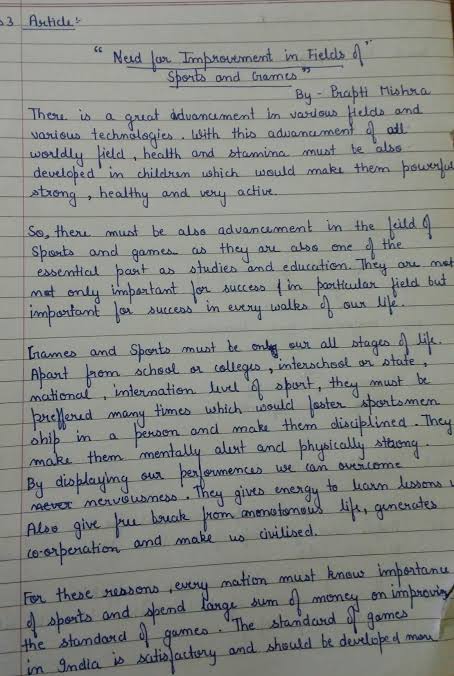 3 Article:-
" Need for Improvement in Fields of "
Sports and Games "
By - Prapti Mishra
There is a great advancement in various fields and
various technologies. With this advancement of all
worldly field, health and stamina must be also
developed in children which would make them powerful
strong, healthy and very active.
So, there must be also advancement in the feild of
Sports and games as they are also one of the
essential part as studies and education. They are not
not only important for success in particular field but
important for success in every walks of our life.
Games and Sports must be our all stages of life.
Apart from school or colleges, interschool or state,
national, internation level of sport, they must be
preffered many times which would foster sportsmen
ship in a person and make them disciplined. They
make them mentally alert and physically strong.
By displaying our performences we can overcome
nervousness. They gives energy to learn lessons
Also give free break from monotonous life, generates
co-orperation and make us civilised.
For these reasons, every nation must know importance
of sports and spend large sum of money on improving
the standard of games. The standard of games
in India is satisfactory and should be developed more